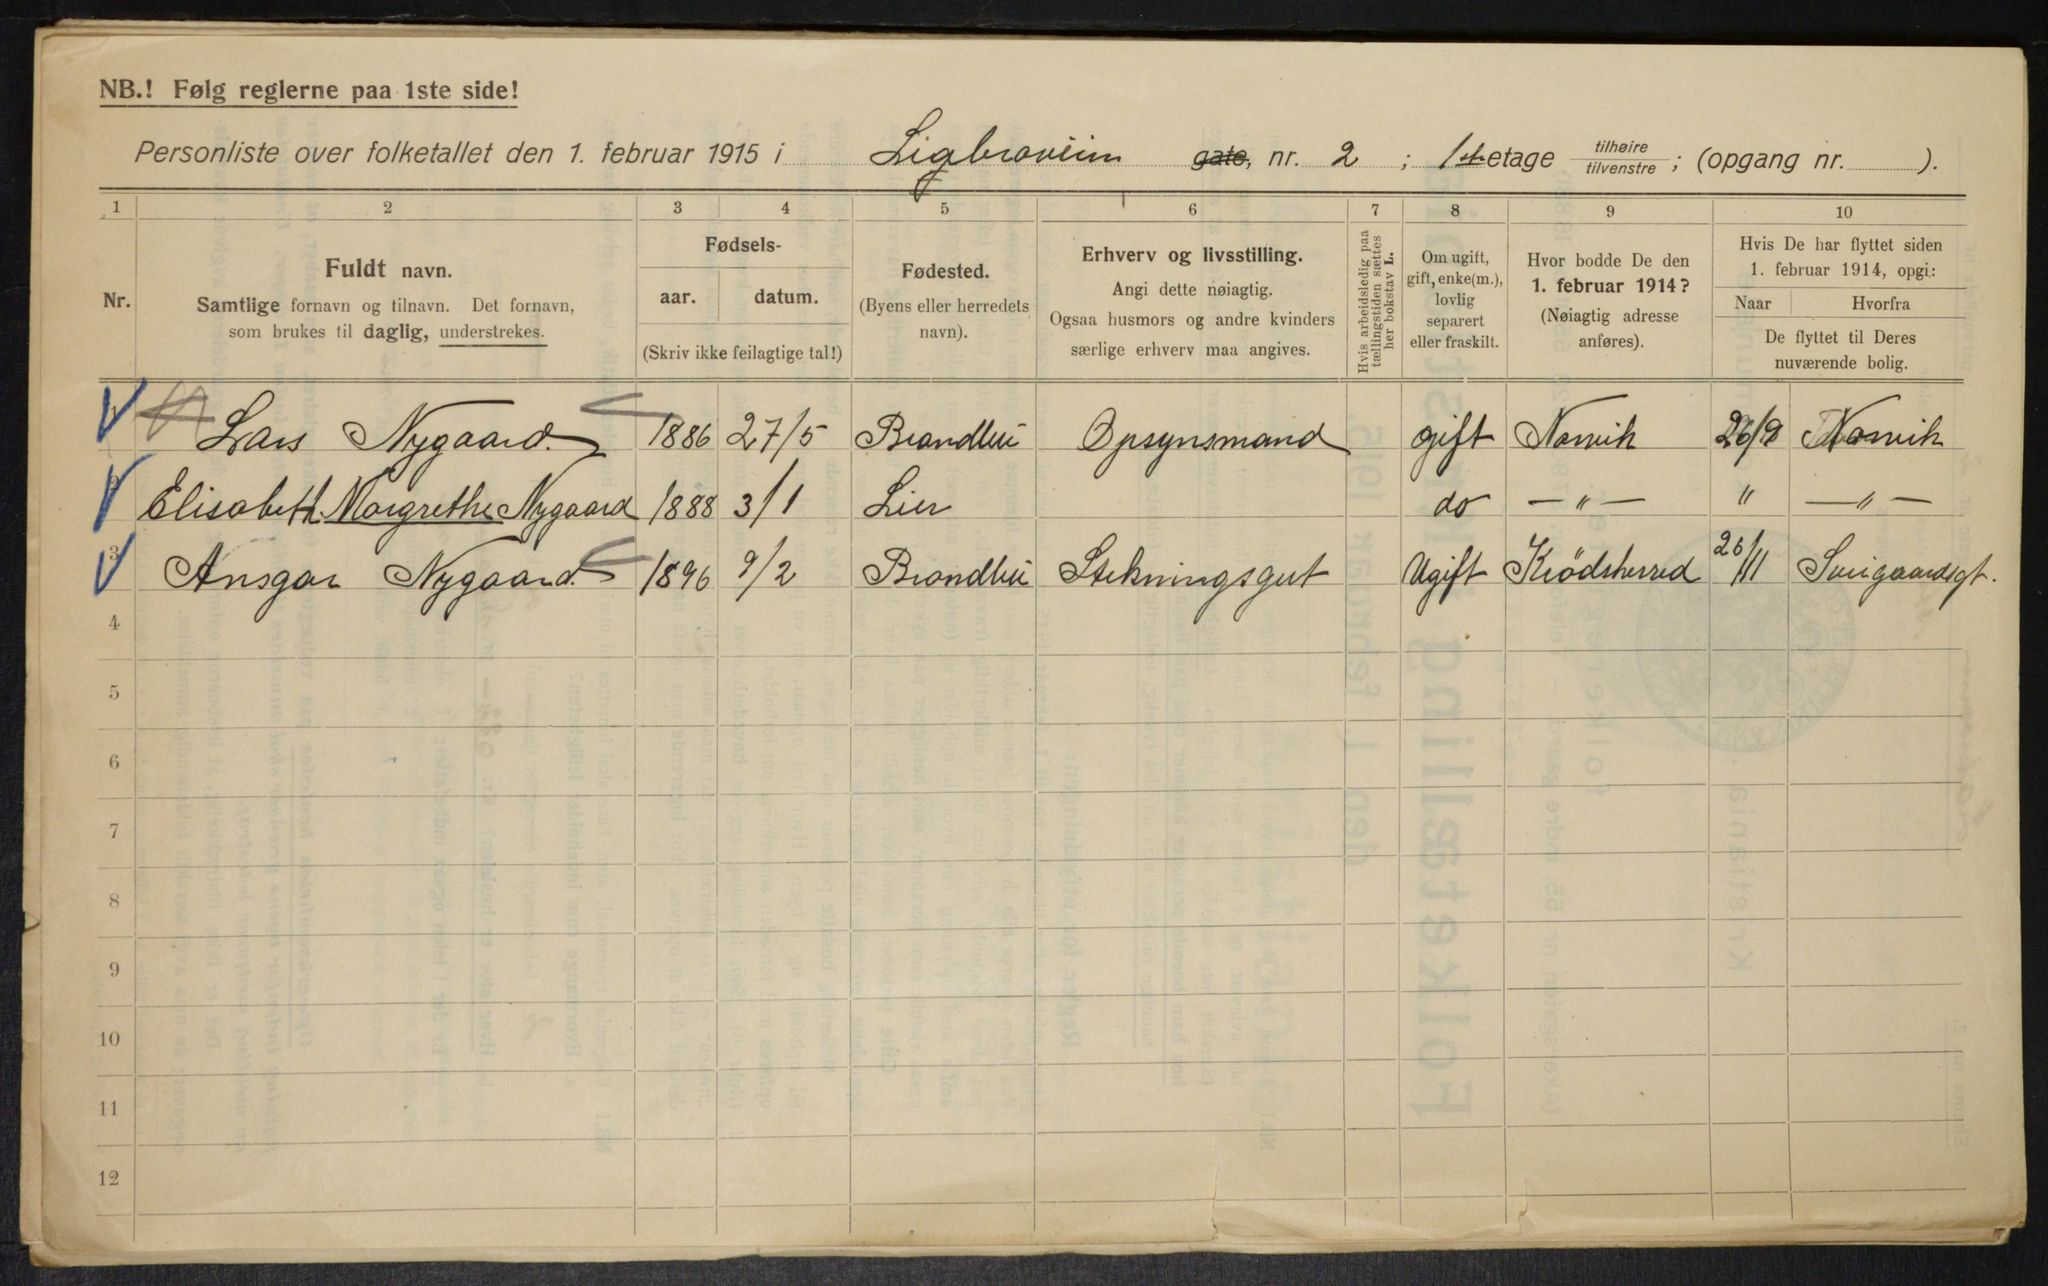 NB.! Følg reglerne paa 1ste side!
Personliste over folketallet den 1. februar 1915 i Ligbroveien gate, nr. 2 ; 1ste etage tilhøire tilvenstre ; (opgang nr. ).
1 2 3 4 5 6 7 8 9 10
Nr.
Fuldt navn.
Samtlige fornavn og tilnavn. Det fornavn,
som brukes til daglig, understrekes.
Fødsels-
aar. datum.
(Skriv ikke feilagtige tal!)
Fødested.
(Byens eller herredets
navn).
Erhverv og livsstilling.
Angi dette nøiagtig.
Ogsaa husmors og andre kvinders
særlige erhverv maa angives.
Hvis arbeidsledig paa
tællingstiden sættes
her bokstav L.
Om ugift,
gift, enke(m.),
lovlig
separert
eller fraskilt.
Hvor bodde De den
1. februar 1914?
(Nøiagtig adresse
anføres).
Hvis De har flyttet siden
1. februar 1914, opgi:
Naar Hvorfra
De flyttet til Deres
nuværende bolig.
1 Lars Nygaard. 1886 27/5 Brandbu Opsynsmand gift Narvik 26/9 Narvik
2 Elisabeth Margrethe Nygaard 1888 3/1 Lier do — „ — „ — „ —
3 Ansgar Nygaard. 1896 9/2 Brandbu Stikningsgut Ugift Krödsherred 26/11 Sveigaardsgt.
4
5
6
7
8
9
10
11
12